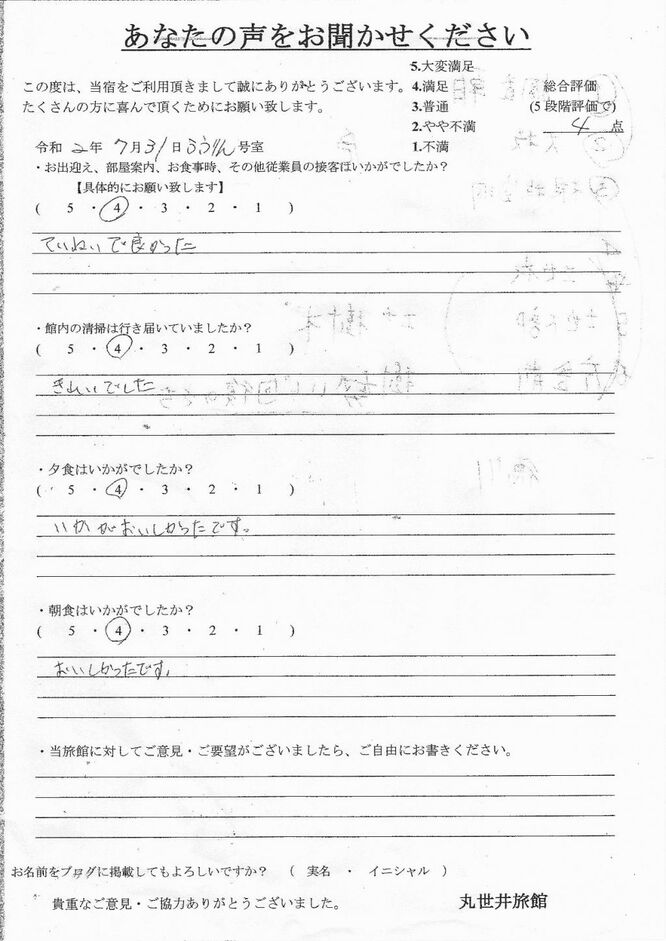 あなたの声をお聞かせください
この度は、当宿をご利用頂きまして誠にありがとうございます。
たくさんの方に喜んで頂くためにお願い致します。
5.大変満足
4.満足
3.普通
2.やや不満
1.不満
総合評価
(5段階評価で)
4 点
令和 2年 7月31日 号室
・お出迎え、部屋案内、お食事時、その他従業員の接客はいかがでしたか?
【具体的にお願い致します】
( 5 ・ 4 ・ 3 ・ 2 ・ 1 )
ていねいで良かった
・館内の清掃は行き届いていましたか?
( 5 ・ 4 ・ 3 ・ 2 ・ 1 )
きれいでした
・夕食はいかがでしたか?
( 5 ・ 4 ・ 3 ・ 2 ・ 1 )
いかがおいしかったです。
・朝食はいかがでしたか?
( 5 ・ 4 ・ 3 ・ 2 ・ 1 )
おいしかったです。
・当旅館に対してご意見・ご要望がございましたら、ご自由にお書きください。
お名前をブログに掲載してもよろしいですか? ( 実名 ・ イニシャル )
貴重なご意見・ご協力ありがとうございました。
丸世井旅館